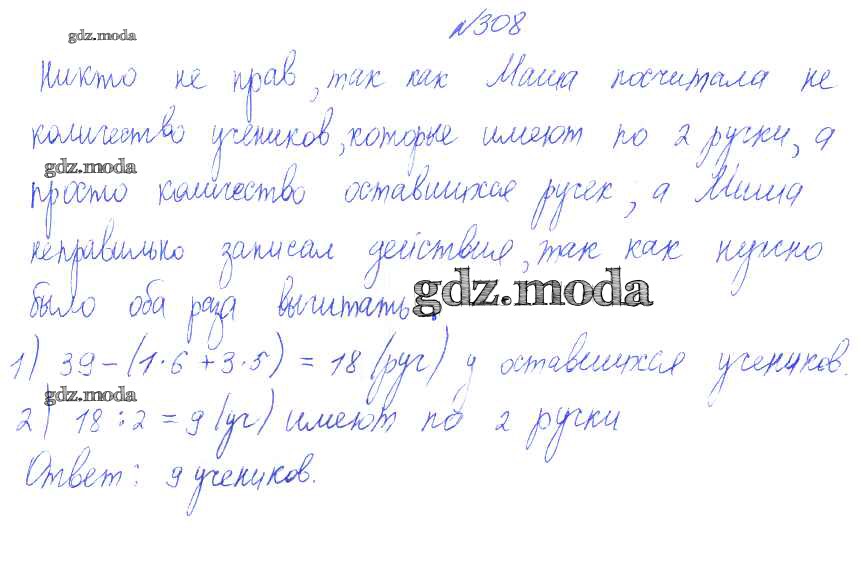 №308
gdz.moda
Никто не прав, так как Маша посчитала не
количество учеников, которые имеют по 2 ручки, а
gdz.moda
просто количество оставшихся ручек, а Миша
неправильно записал действия, так как нужно
было оба раза вычитать.
gdz.moda
1) 39-(1·6+3·5)=18 (руч) у оставшихся учеников.
gdz.moda
2) 18:2=9 (уч) имеют по 2 ручки
Ответ: 9 учеников.